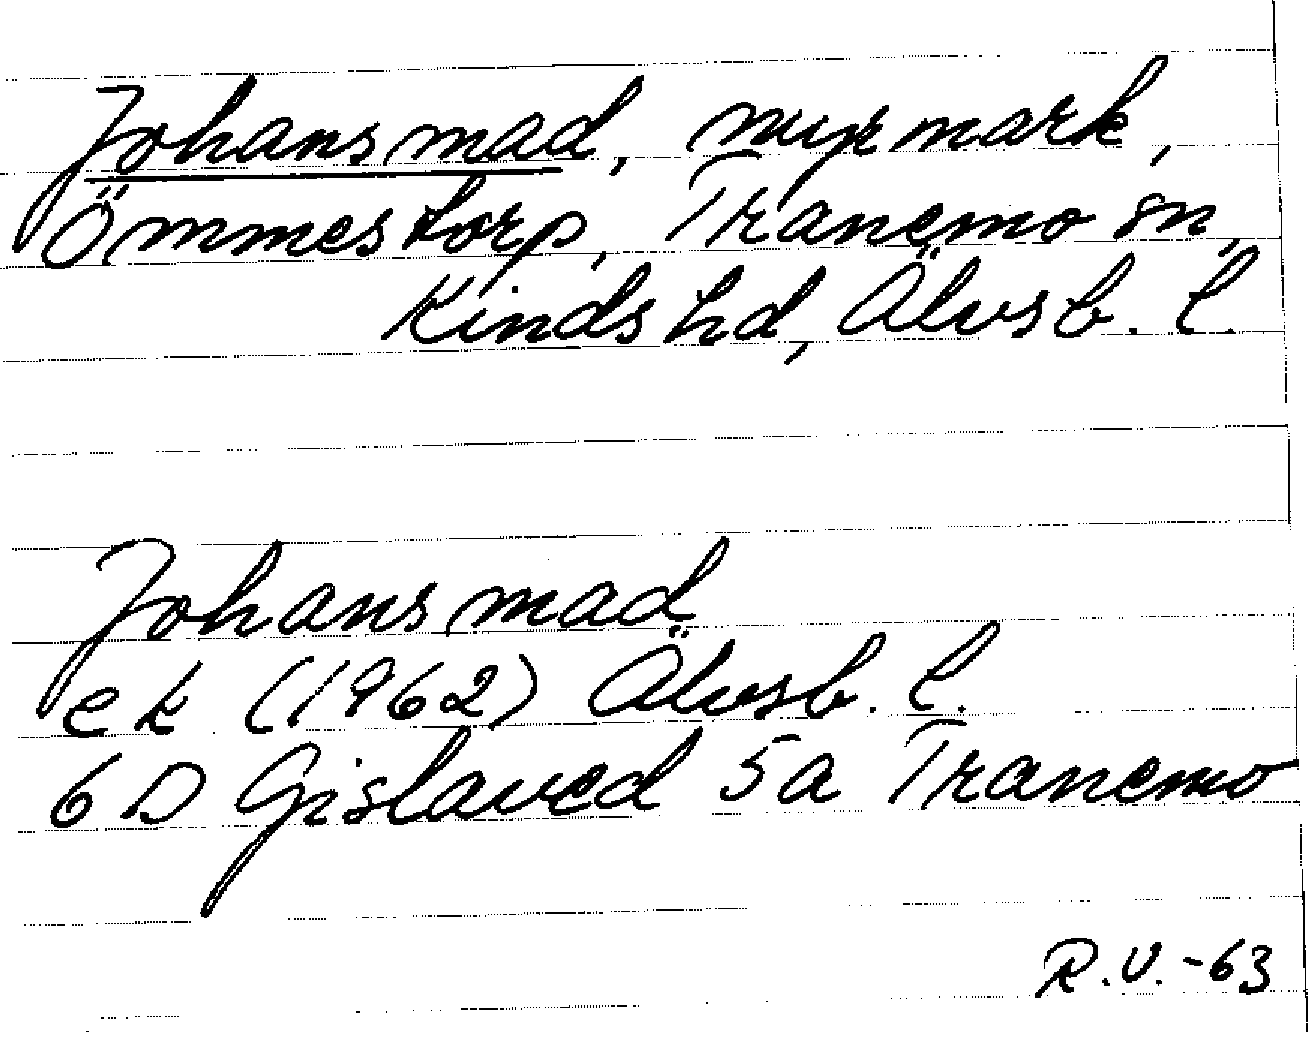 Johansmad, myrmark,
Ömmestorp, Tranemo sn,
Kinds hd, Älvsb. l.
Johansmad
ek (1962) Älvsb. l.
6D Gislaved 5a Tranemo
R.V.-63